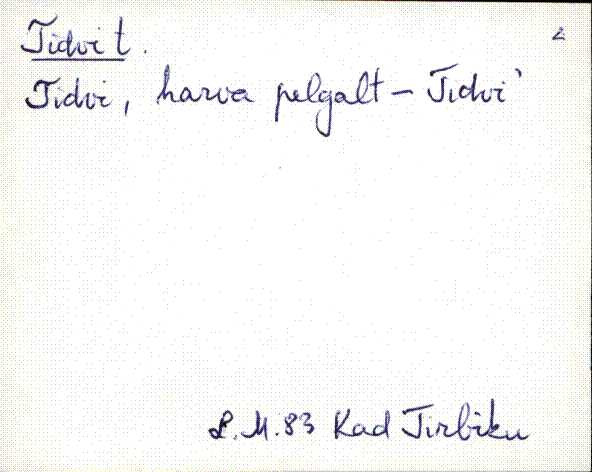 Tidvi t.
2
Tidvi, harva pelgalt – Tidvi'
L.M.83 Kad Tirbiku